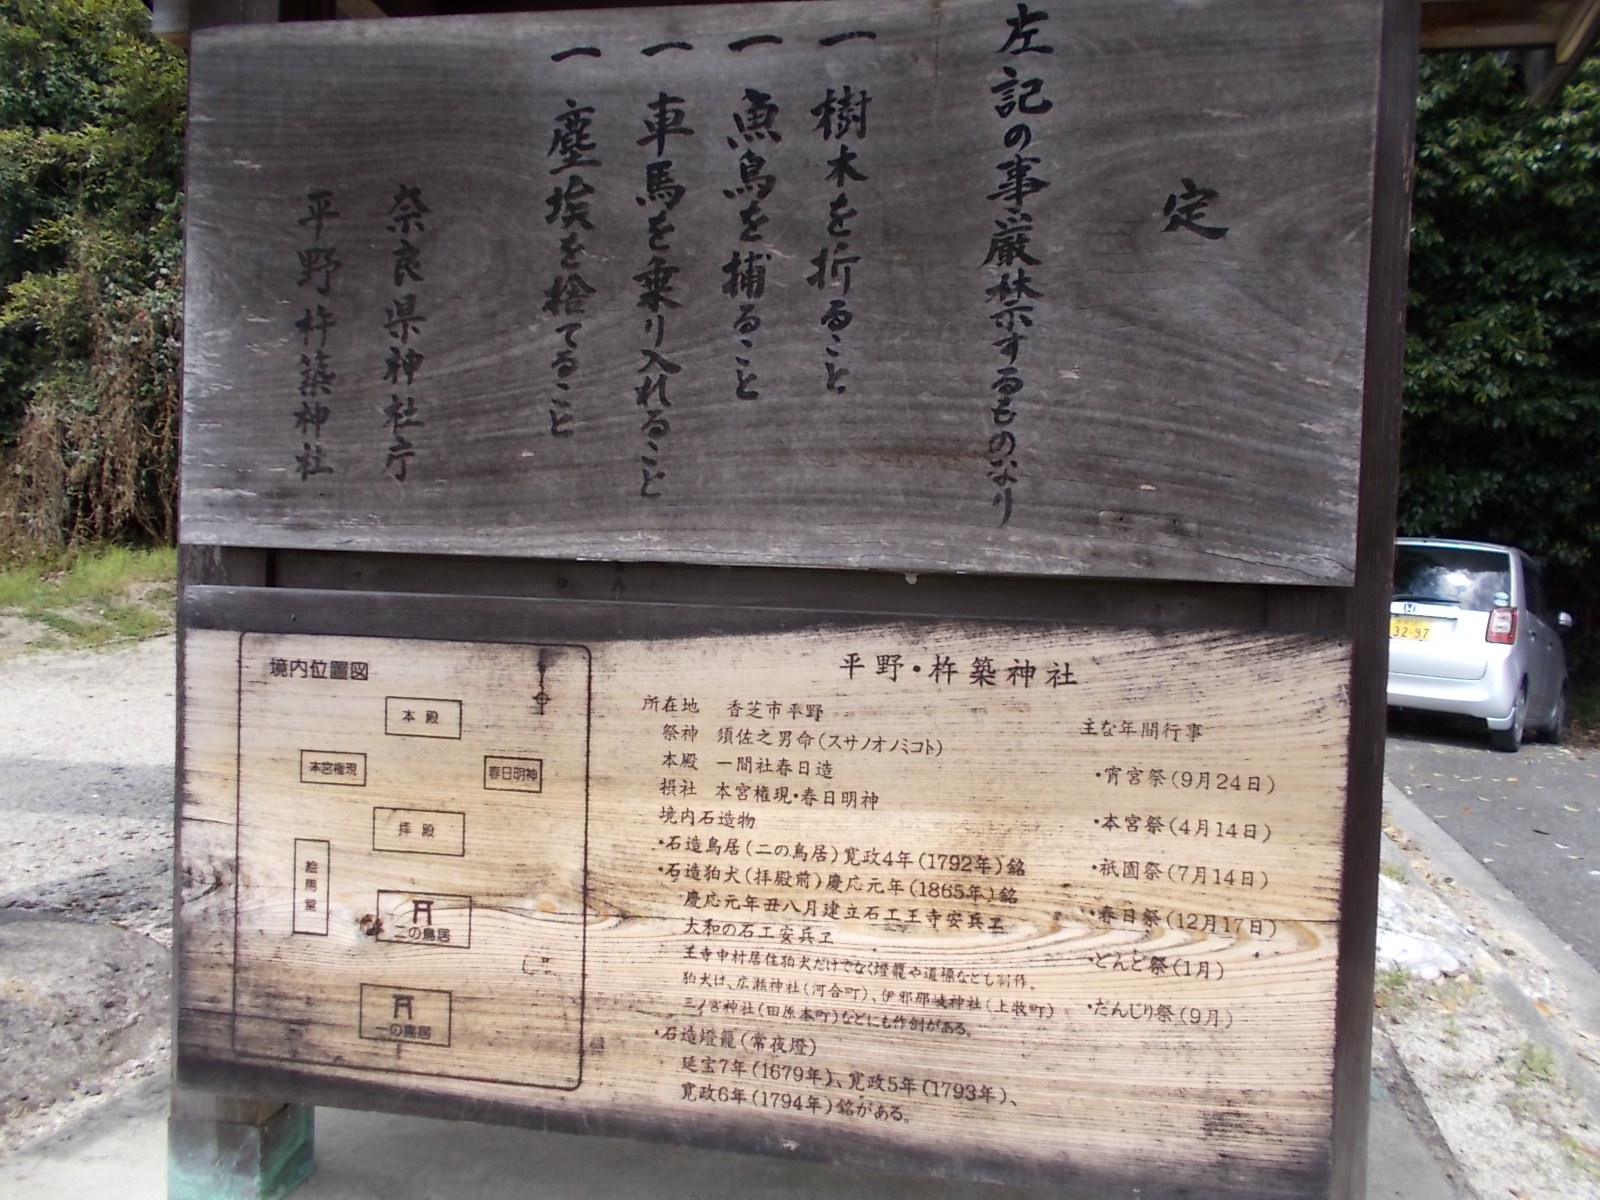 定
左記の事に厳禁するものなり
一 樹木を折ること
一 魚鳥を捕ること
一 車馬を乗り入れること
一 塵埃を捨てること
奈良県神社庁
平野杵築神社
境内位置図
本殿
本宮権現
春日明神
拝殿
絵馬堂
二の鳥居
一の鳥居
平野・杵築神社
所在地 香芝市平野
祭神 須佐之男命(スサノオノミコト)
本殿 一間社春日造
損社 本宮権現・春日明神
境内石造物
・石造鳥居(二の鳥居)寛政4年(1792年)銘
・石造狛犬(拝殿前)慶応元年(1865年)銘
慶応元年丑八月建立石工王寺安兵ヱ
大和の石工安兵ヱ
王寺中村居住狛犬だけでなく燈籠や道標なども制作。
狛犬は、広瀬神社(河合町)、伊邪那岐神社(上牧町)
三ノ宮神社(田原本町)などにも作例がある。
・石造燈籠(常夜燈)
延宝7年(1679年)、寛政5年(1793年)、
寛政6年(1794年)銘がある。
主な年間行事
・宵宮祭(9月24日)
・本宮祭(4月14日)
・祇園祭(7月14日)
・春日祭(12月17日)
・どんど祭(1月)
・だんじり祭(9月)
32-97